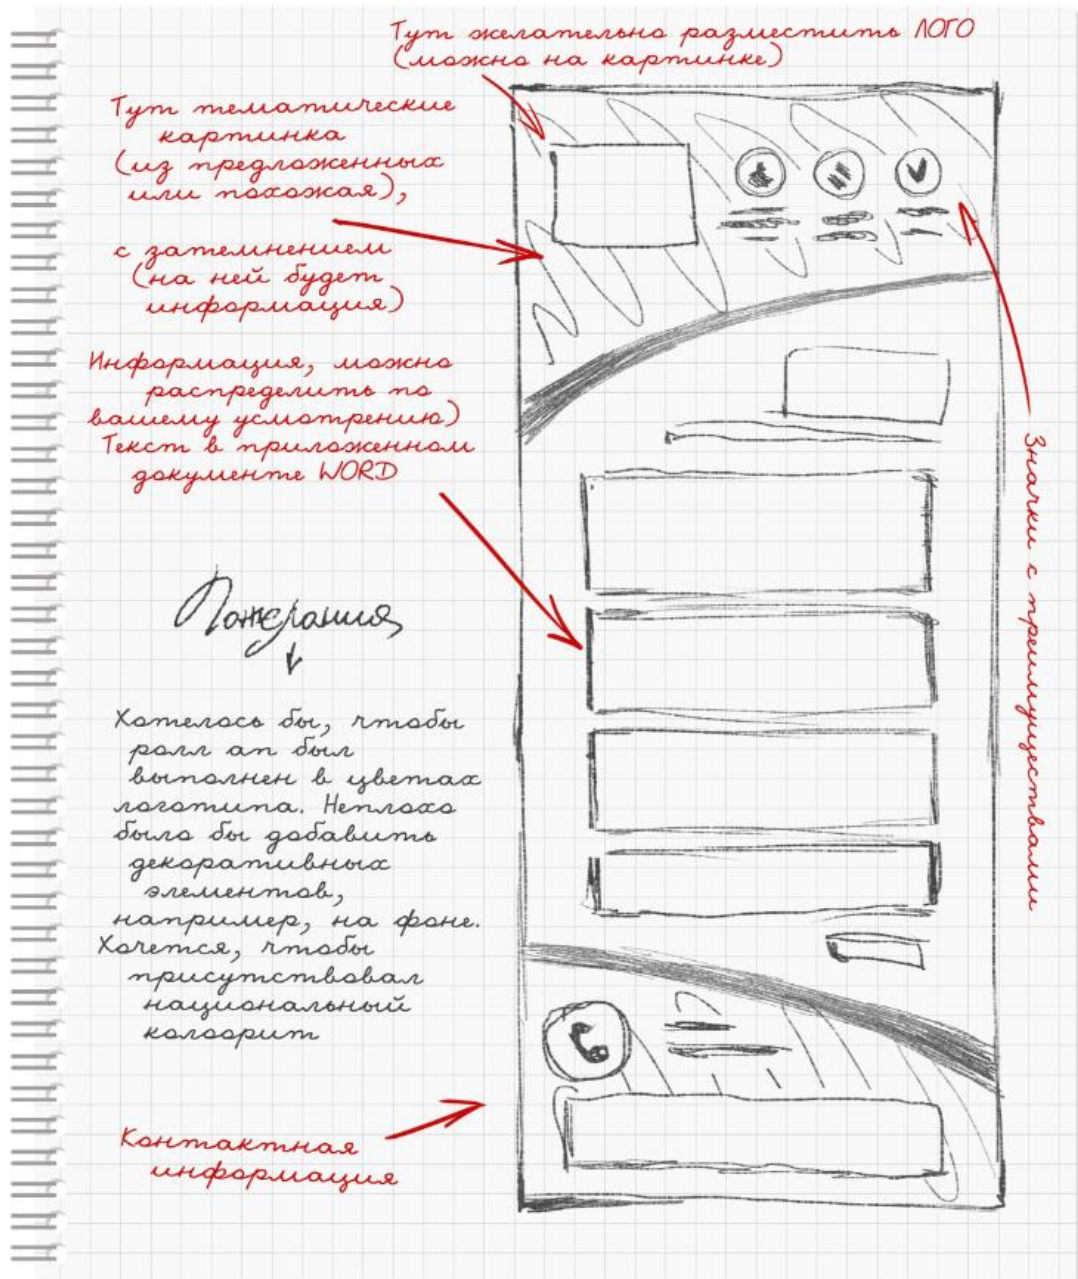 Тут желательно разместить ЛОГО
(можно на картинке)
Тут тематические
картинка
(из предложенных
или похожая),
с затемнением
(на ней будет
информация)
Информация, можно
распределить по
вашему усмотрению)
Текст в приложенном
документе WORD
Значки с преимуществами
Пожелания
Хотелось бы, чтобы
ролл ап был
выполнен в цветах
логотипа. Неплохо
было бы добавить
декоративных
элементов,
например, на фоне.
Хочется, чтобы
присутствовал
национальный
колоорит
Контактная
информация